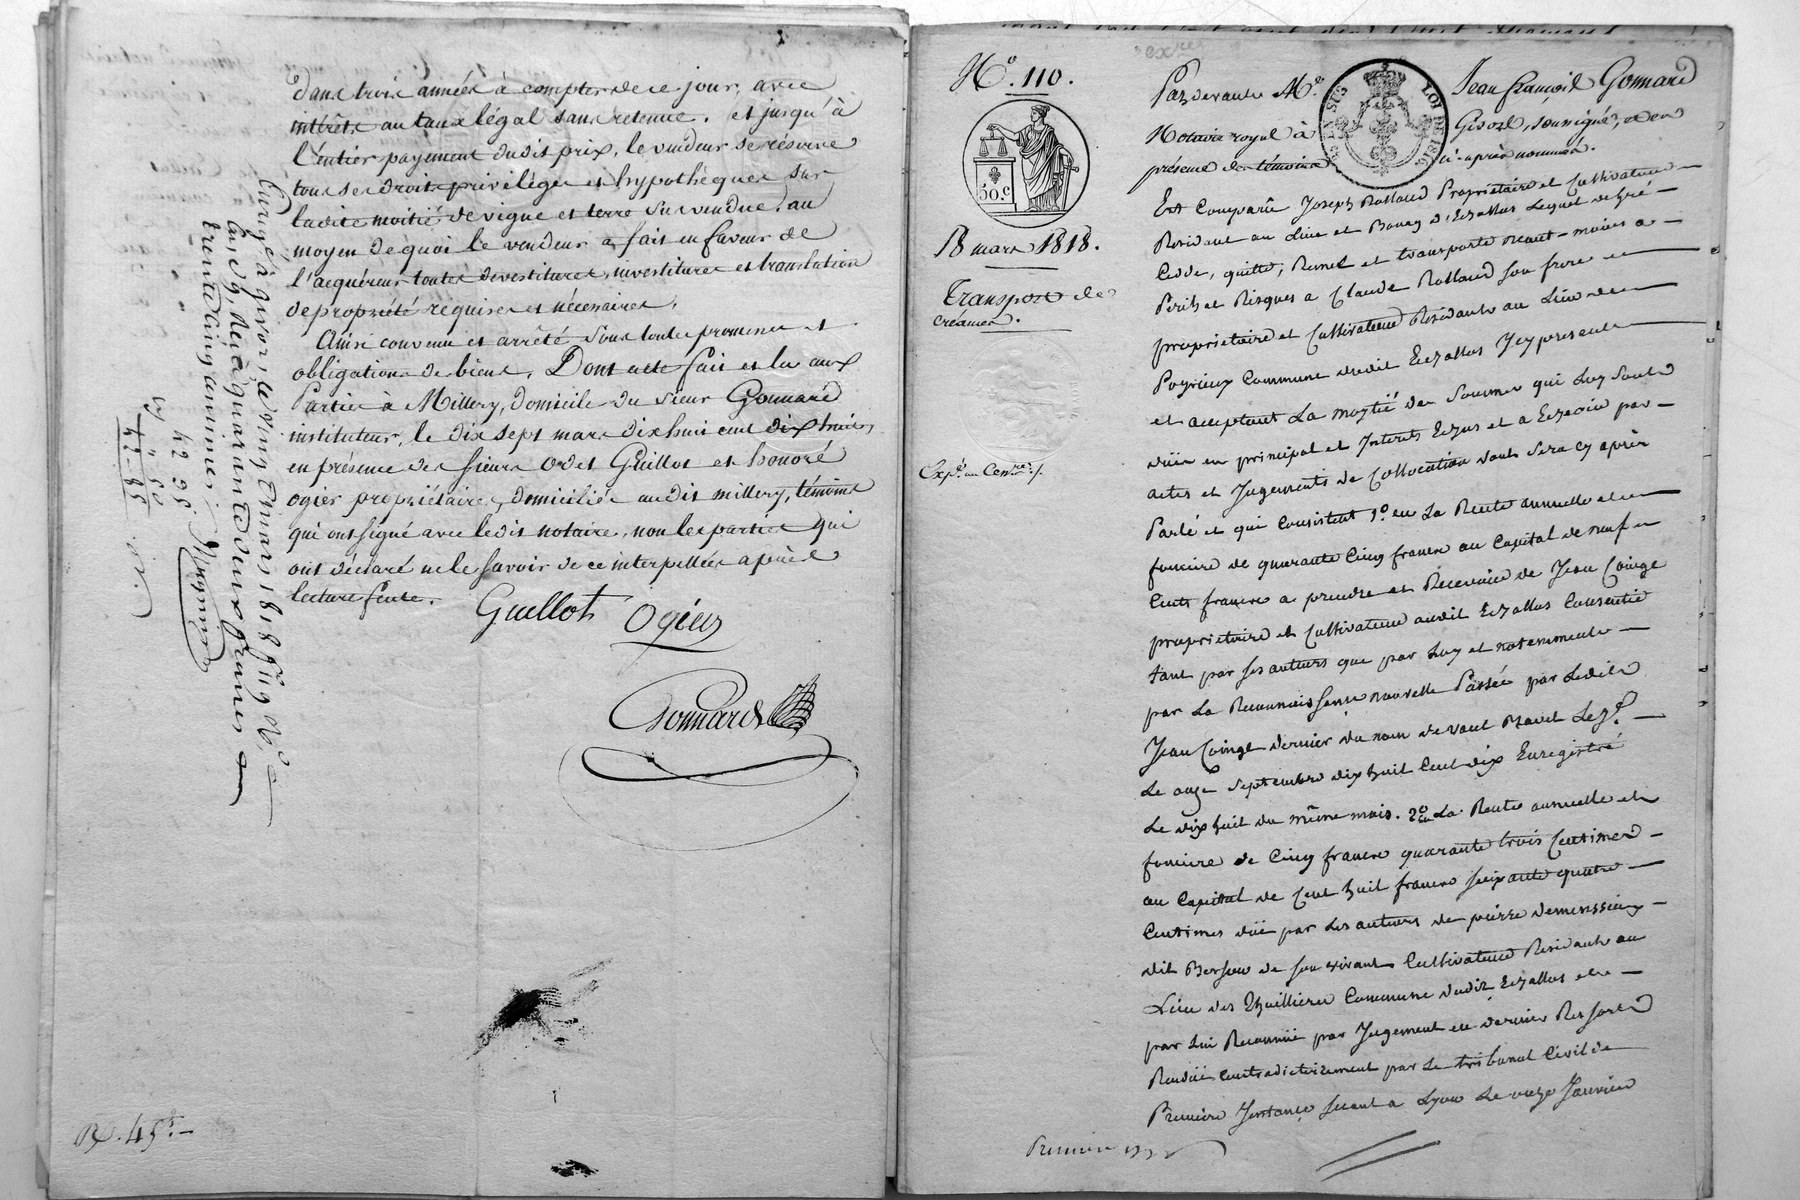 Dans trois années à compter de ce jour, avec
intérêts au taux légal sans retenue. et jusqu'à
l'entier payement dudit prix, le vendeur se réserve
tous ses droits privilèges et hypothèques sur
ladite moitié de vigne et terre sus vendue, au
moyen de quoi le vendeur a fait en faveur de
l'acquéreur toutes devestitures, investitures et translation
de propriété requises et nécessaires.
Ainsi convenu et arrêté sous toutes promesses et
obligations de biens. Dont acte fait et lu aux
Parties à Millery, domicile du sieur Gonnard
instituteur, le dix sept mars dix huit cent dix huit,
en présence des sieurs Odet Guillot et honoré
ogier propriétaires, domiciliés audit millery, témoins
qui ont signé avec ledit notaire, non les parties qui
ont déclaré ne le savoir de ce interpellées après
lecture faite.
Guillot Ogier
Gonnard
Enregé à givors, le vingt mars 1818 fo 119 Vo
Reçu quarante deux francs
trente cinq centimes
42 35
4 50
R. 45f.
No. 110.
50 c
18 mars 1818.
Transport de
créances.
Expé. en Cen.re
Pardevant Me. Jean françois Gonnard
Notaire royal à Givors, soussigné, et en
présence des témoins ci-après nommés.
Est Comparu Joseph Rolland Propriétaire et Cultivateur
Residant au Lieu et Bourg d'Echallas Lequel de gré
Cedde, quitte, Remet et transporte neant-moins a
Perils et Risques a Claude Rolland son frere et
proprietaire et Cultivateur Residant au Lieu de
Poyrieux Commune dudit Echallas Icy present
et acceptant La moytié des Sommes qui Luy sont
düe en principal et Interets Echus et a Echeoir par
actes et Jugements de Collocation dont Sera cy après
Parlé et qui Consistent 1o. en La Rente annuelle et
fonciere de quarante Cinq francs au Capital de neuf
Cents francs a prendre et Recevoir de Jean Coinge
proprietaire et Cultivateur audit Echallas Consentie
tant par ses auteurs que par Luy et notemment
par La Reconnaissance nouvelle Passée par Ledit
Jean Coinge dernier du nom devant
Le onze Septembre dix huit Cent dix Enregistré
Le dix huit du même mois. 2o en La Rente annuelle et
fonciere de Cinq francs quarante trois Centimes
au Capital de Cent huit francs soixante quatre
Centimes düe par Les auteurs de pierre
dit de son vivant Cultivateur Residant au
Lieu des Thuillieres Commune dudit Echallas et
par Lui Reconnüe par Jugement en dernier Ressort
Rendü Contradictoirement par Le tribunal Civil de
Premiere Instance seant a Lyon Le onze Janvier
Premier